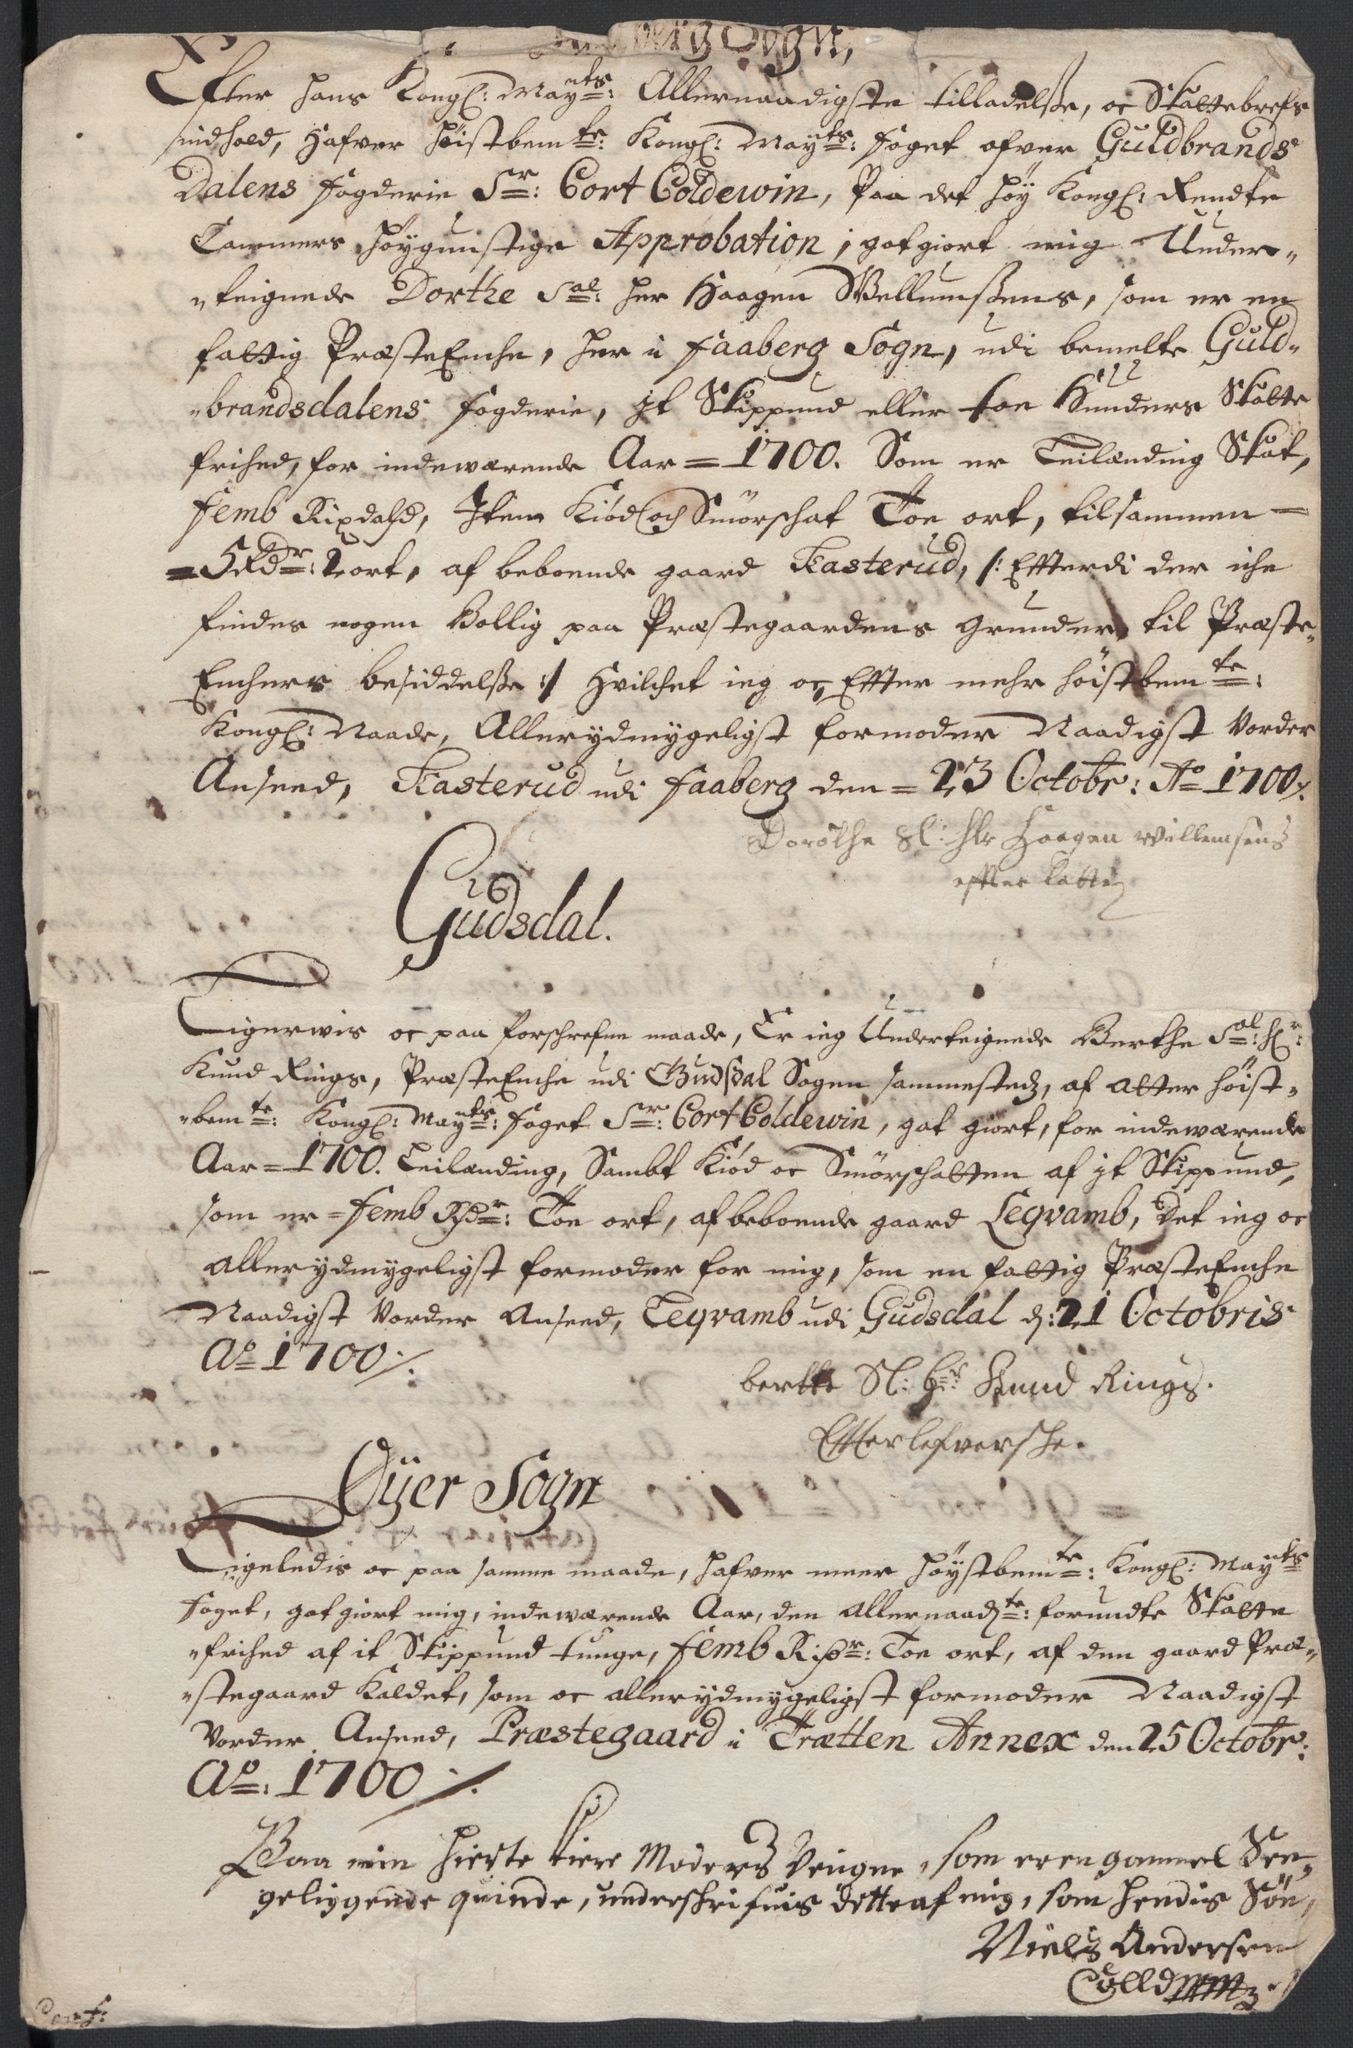 berg Sogn,
Efter hans Kongl: Mayts: Allernaadigste tilladelsse, oc Skattebrefs
indhold, Hafver høistbemte: Kongl: Mayts: foget ofver Guldbrands
Dalens fogderie Sr: Cort Coldewin, Paa det høy Kongl: Rendte
Cammers høygunstige Approbation, gotgiort mig Under-
teignede Dorthe Sal: her Haagen Wellumssens, som er en
fattig PræsteEnche, her i faaberg Sogn, udi bemelte Guld-
brandsdalens fogderie, jt Skippund eller toe Hunders Skatte
frihed, for indeværende Aar = 1700. Som er Leilænding Skat,
femb Rixdalr, Item Kiød och Smørschat Toe ort, tilsammen =
= 5 Rdr: 2 ort, af beboende gaard Kasterud, /: Efterdi der iche
findes nogen Bollig paa Præstegaardens Grunder, til Præste-
Enchers besiddelsse :/ Hvilchet ieg oc Efter mehr høistbemte:
Kongl: Naade, Allerydmygeligst formoder Naadigst Vorder
Anseed, Kasterud udi faaberg den = 23 Octobr: Ao 1700 /.
Dorothe Sl: Hr Haagen Willemsens
efter latte
Gudsdal.
Ligerwis oc paa forschrefne maade, Er ieg Underteignede Berthe Sal: Hr:
Knud Rings, PræsteEnche udi Gudsdal Sogen sammesteds, af atter høist-
bemte: Kongl: Mayts: foget Sr: Cort Coldewin, got giort, for indeværende
Aar = 1700. Leilænding, Sambt Kiød oc Smørschatten af jt Skippund,
som er = femb Rdr: Toe ort, af beboende gaard Legvamb, Det ieg oc
allerydmygeligst formoder for mig, som en fattig PræsteEnche
Naadigst Vorder Anseed, Legvamb udi Gudsdal d: 21 Octobris
Ao 1700 /.
berthe Sl: Hr: Knud Rings.
Efterlefversche.
Øyer Sogn
Ligeledis oc paa samme maade, hafver meer høystbemte: Kongl: Mayts
foget, gotgiort mig, indeværende Aar, den allernaadte: forundte Skatte
frihed af it Skippund tunge, femb Rixdr: Toe ort, af den gaard Præ-
stegaard Kaldet, som oc allerydmygeligst formoder Naadigst
Vorder Anseed, Præstegaard i Trætten Annex den 25 Octobr:
Ao: 1700 /.
Paa min hierte kiere Moders Veigne, som er en gammel Sen-
geliggende quinde, underschrifuis dette af mig, som hendis Søn,
Niels Andersen